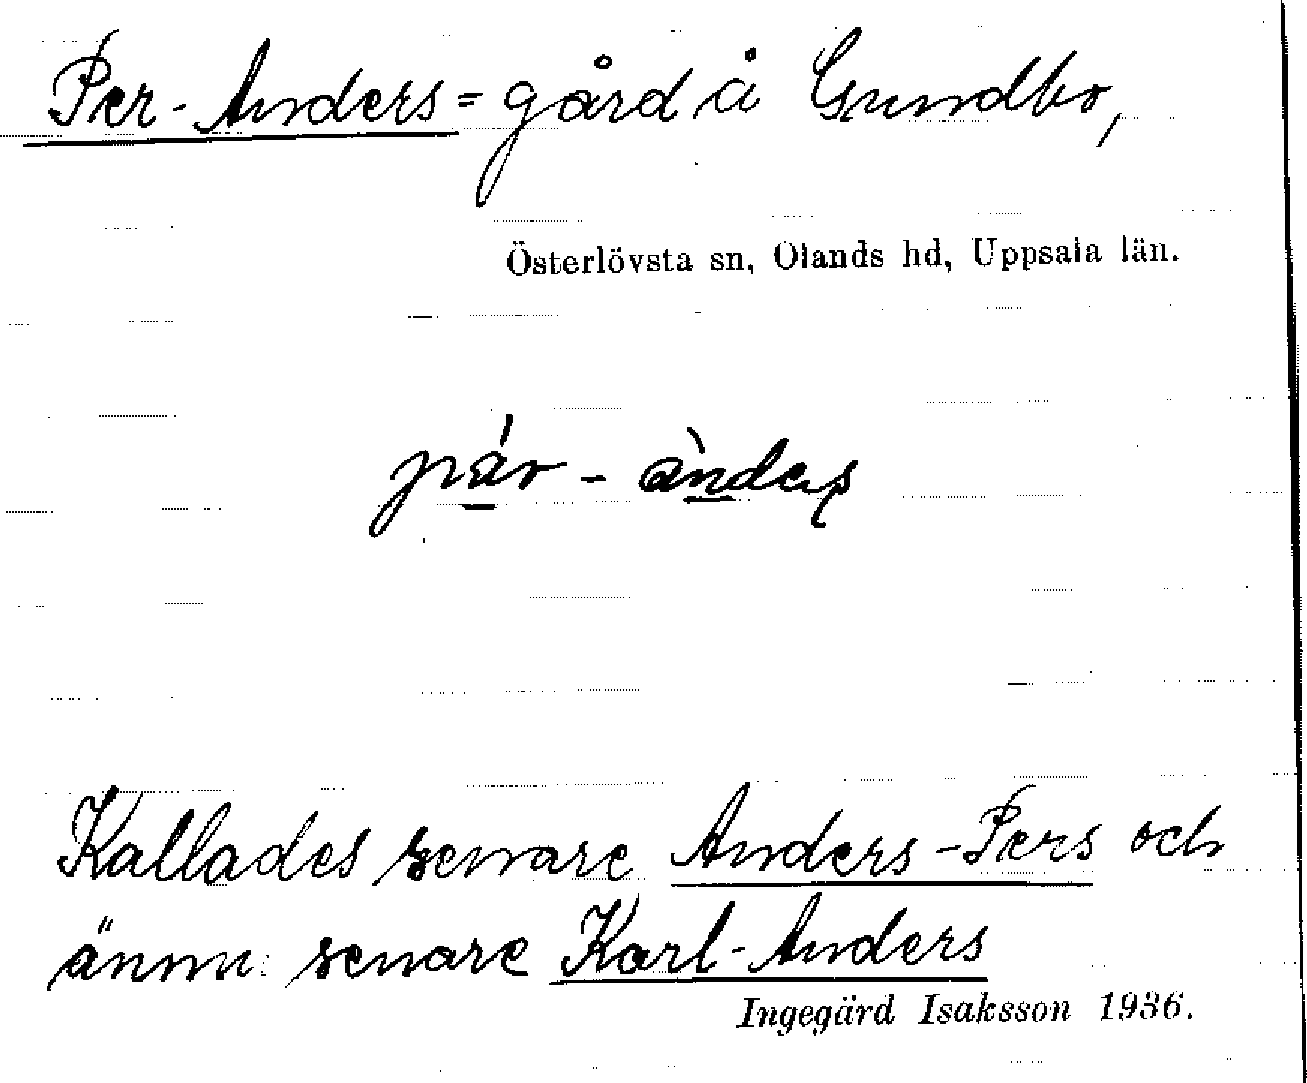 Per-Anders = gård å Gundbo,
Österlövsta sn, Olands hd, Uppsala län.
pá̱r - àṉders
Kallades senare Anders-Pers och
ännu senare Karl-Anders
Ingegärd Isaksson 1936.